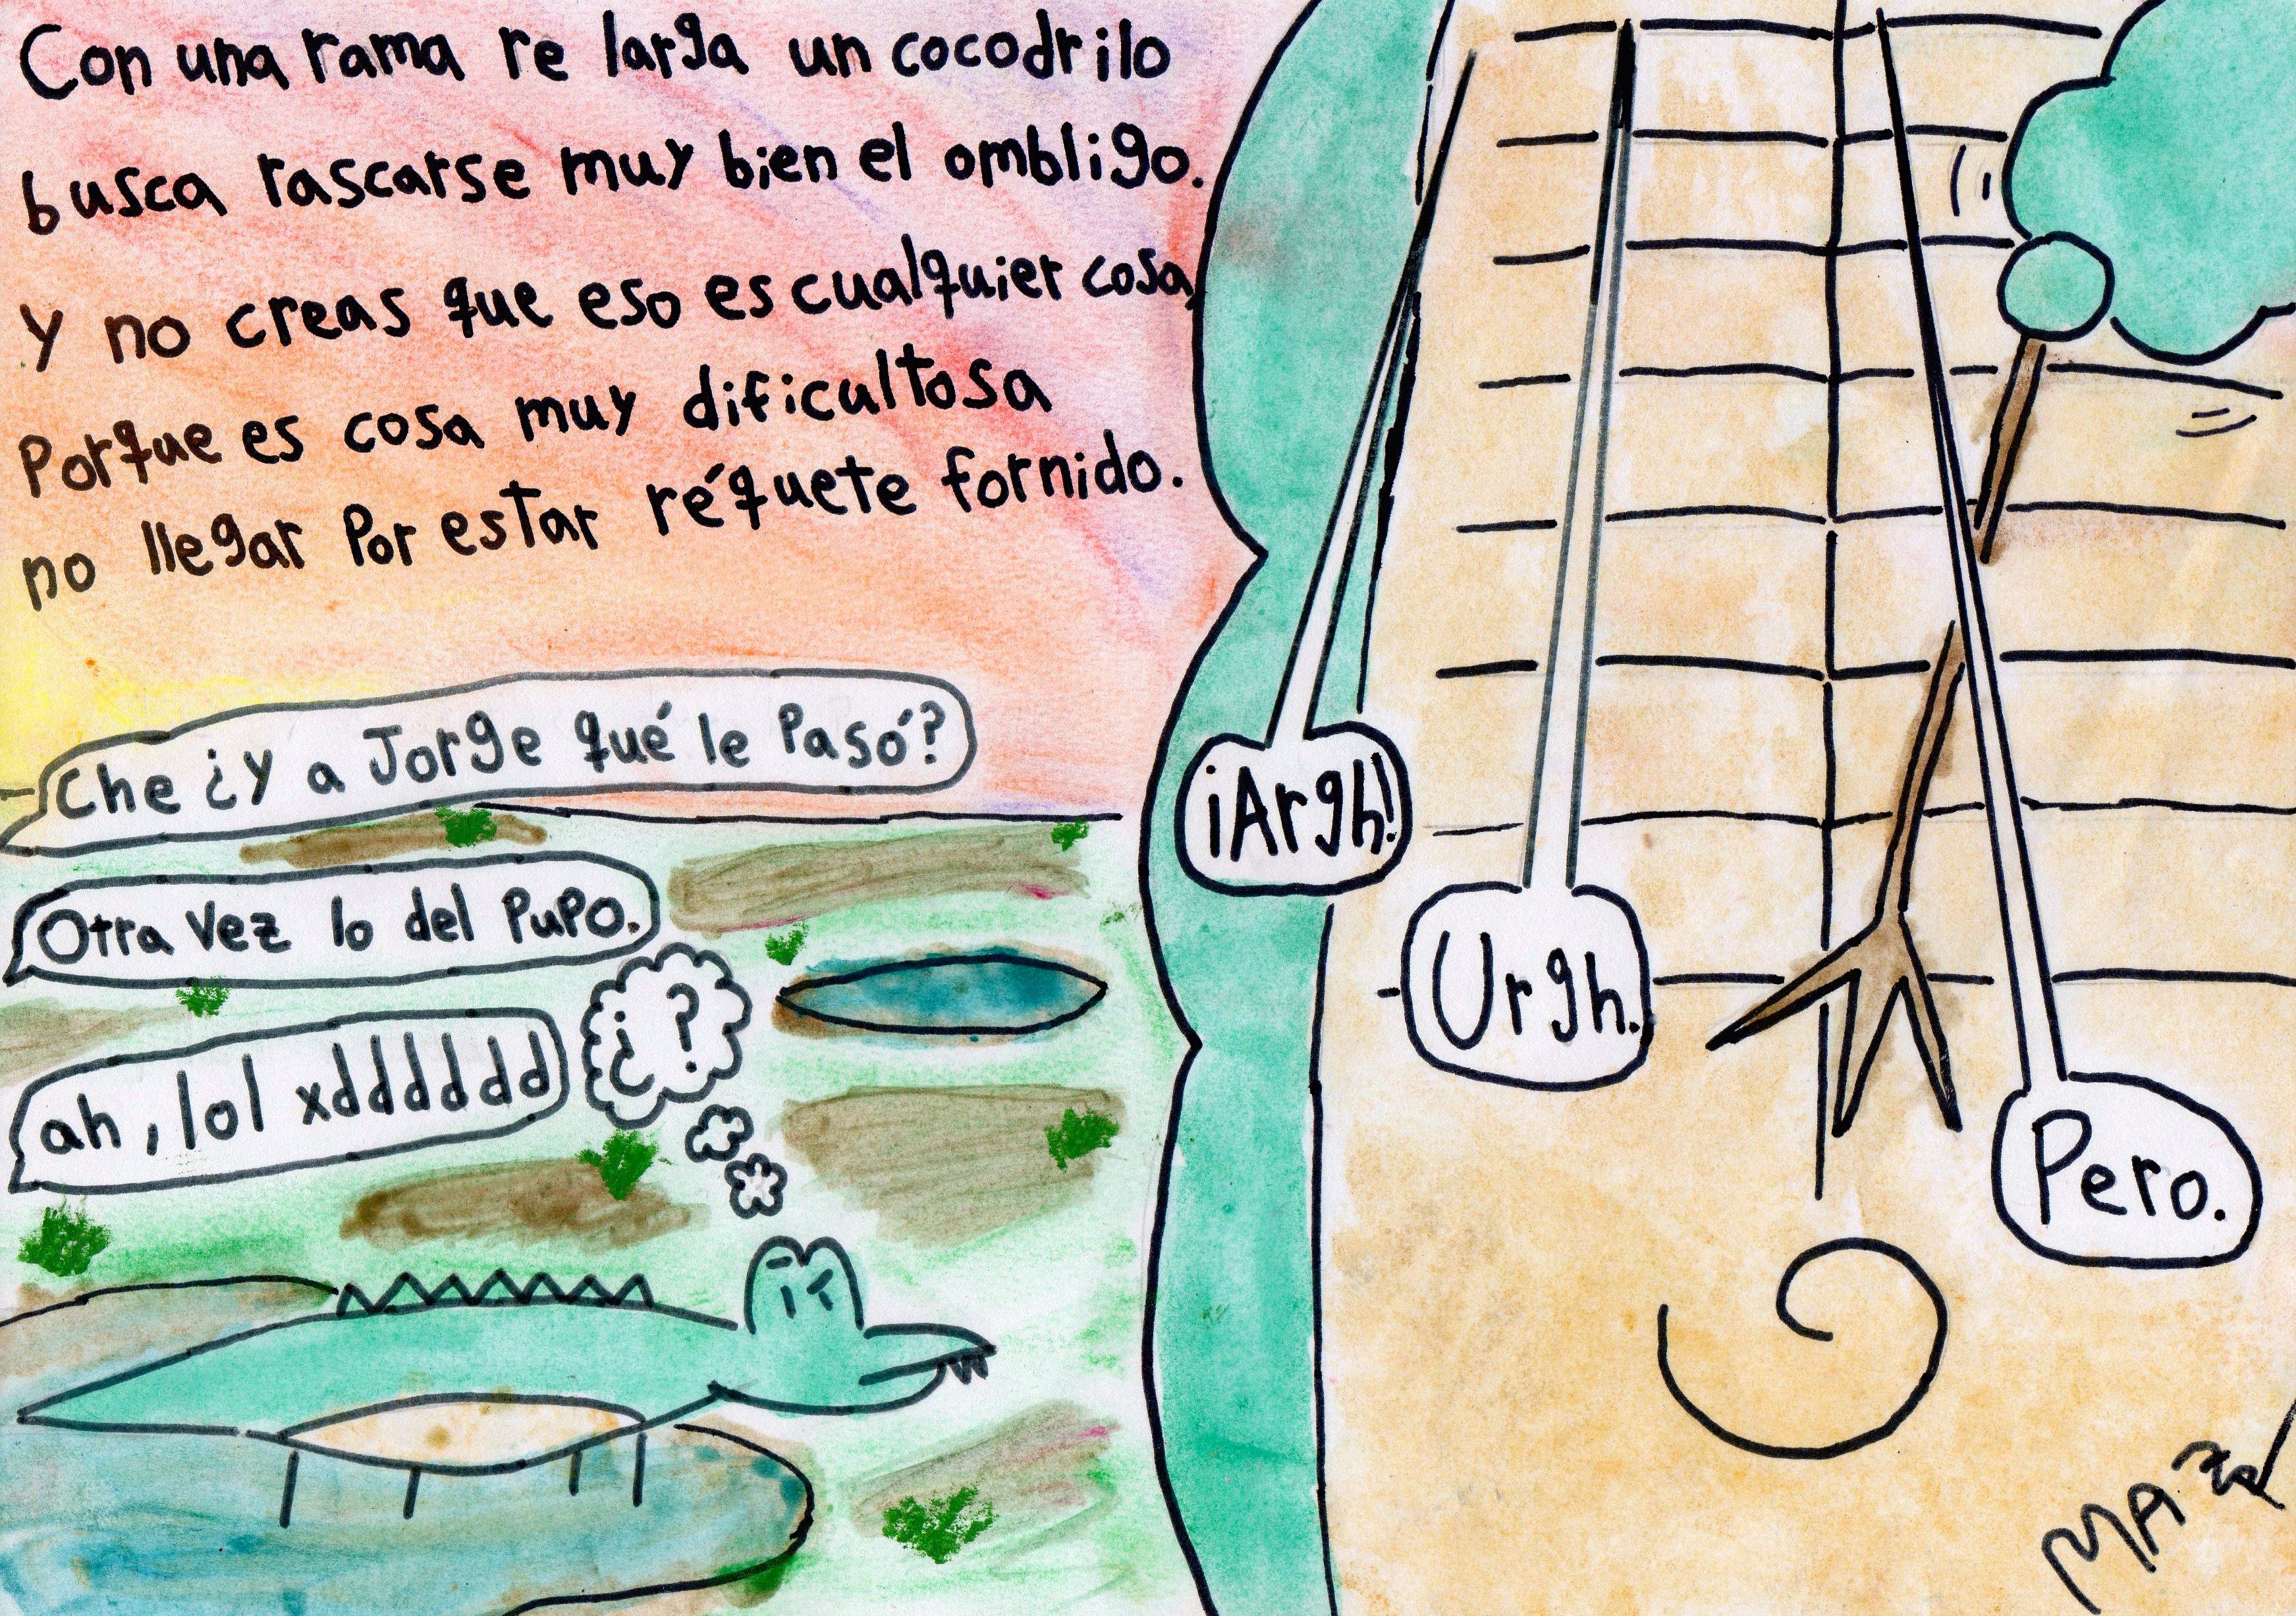 Con una rama re larga un cocodrilo
busca rascarse muy bien el ombligo.
Y no creas que eso es cualquier cosa,
Porque es cosa muy dificultosa
no llegar por estar réquete fornido.
Che ¿y a Jorge qué le pasó?
Otra vez lo del pupo.
ah, lol xdddddd
¿?
¡Argh!
Urgh.
Pero.